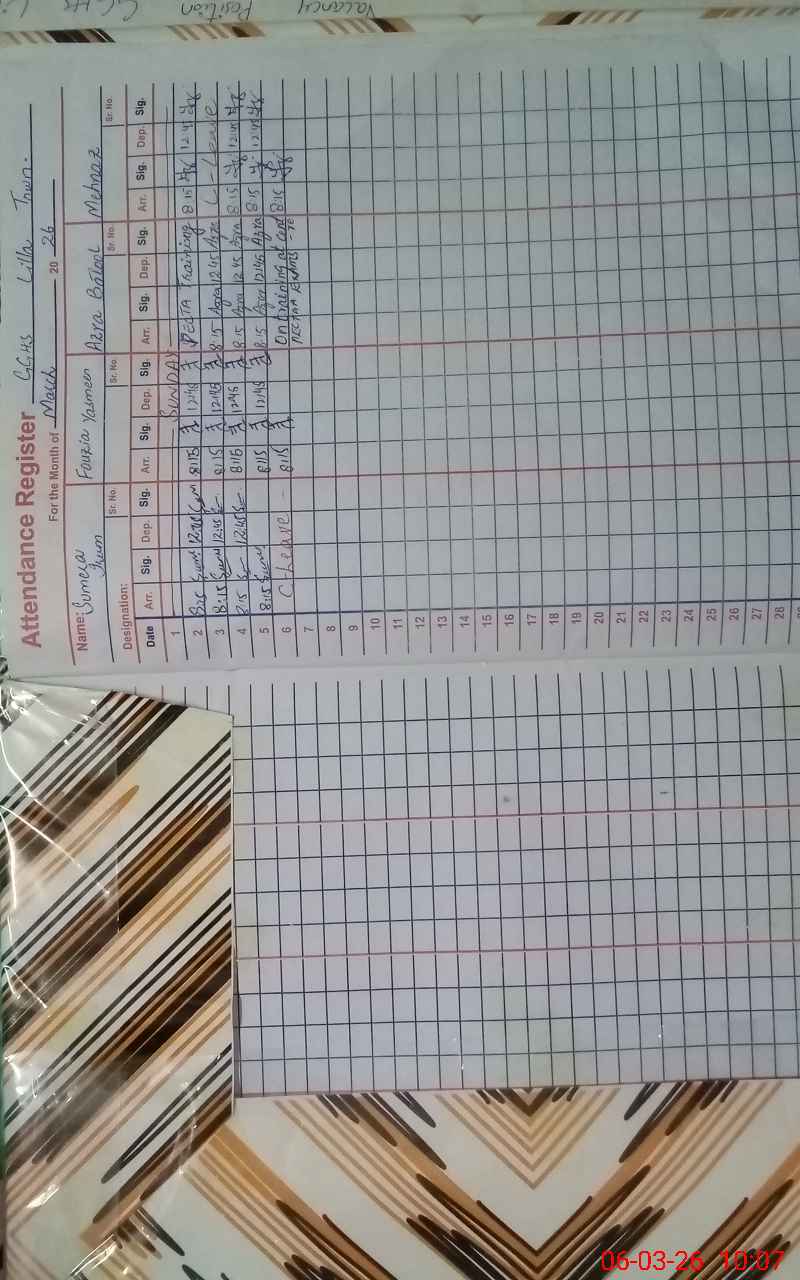 Vacancy Position GGHS Li
Attendance Register GGHS Lilla Town.
For the Month of March 20 26
Name: Sumera Fouzia Yasmeen Azra Batool Mehnaz
Designation: Sr. No. Sr. No. Sr. No. Sr. No.
Date Arr. Sig. Dep. Sig. Arr. Sig. Dep. Sig. Arr. Sig. Dep. Sig. Arr. Sig. Dep. Sig.
1 SUNDAY
2 8:15 12:45 8:15 12:45 PECTA Training 8:15 12:45
3 8:15 12:45 8:15 12:45 8:15 Azra 12:45 Azra L - Leave
4 8:15 12:45 8:15 12:45 8:15 Azra 12:45 Azra 8:15 12:45
5 8:15 8:15 12:45 8:15 Azra 12:45 Azra 8:15 12:45
6 C-Leave - 8:15 On training at 8:15
7
8
9
10
11
12
13
14
15
16
17
18
19
20
21
22
23
24
25
26
27
28
06-03-26 10:07